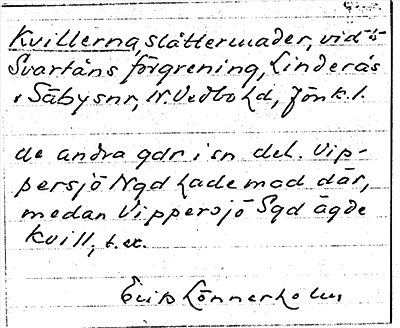 Kvillerna, slåttermader, vid
Svartåns förgrening, Linderås
o Säbysnr, N. Vedbo hd, Jönk. l.
de andra gdr i sn del. Vip-
persjö Ngd hade mad där,
medan Vippersjö Sgd ägde
Kvill, t.ex.
Erik Lönnerholm